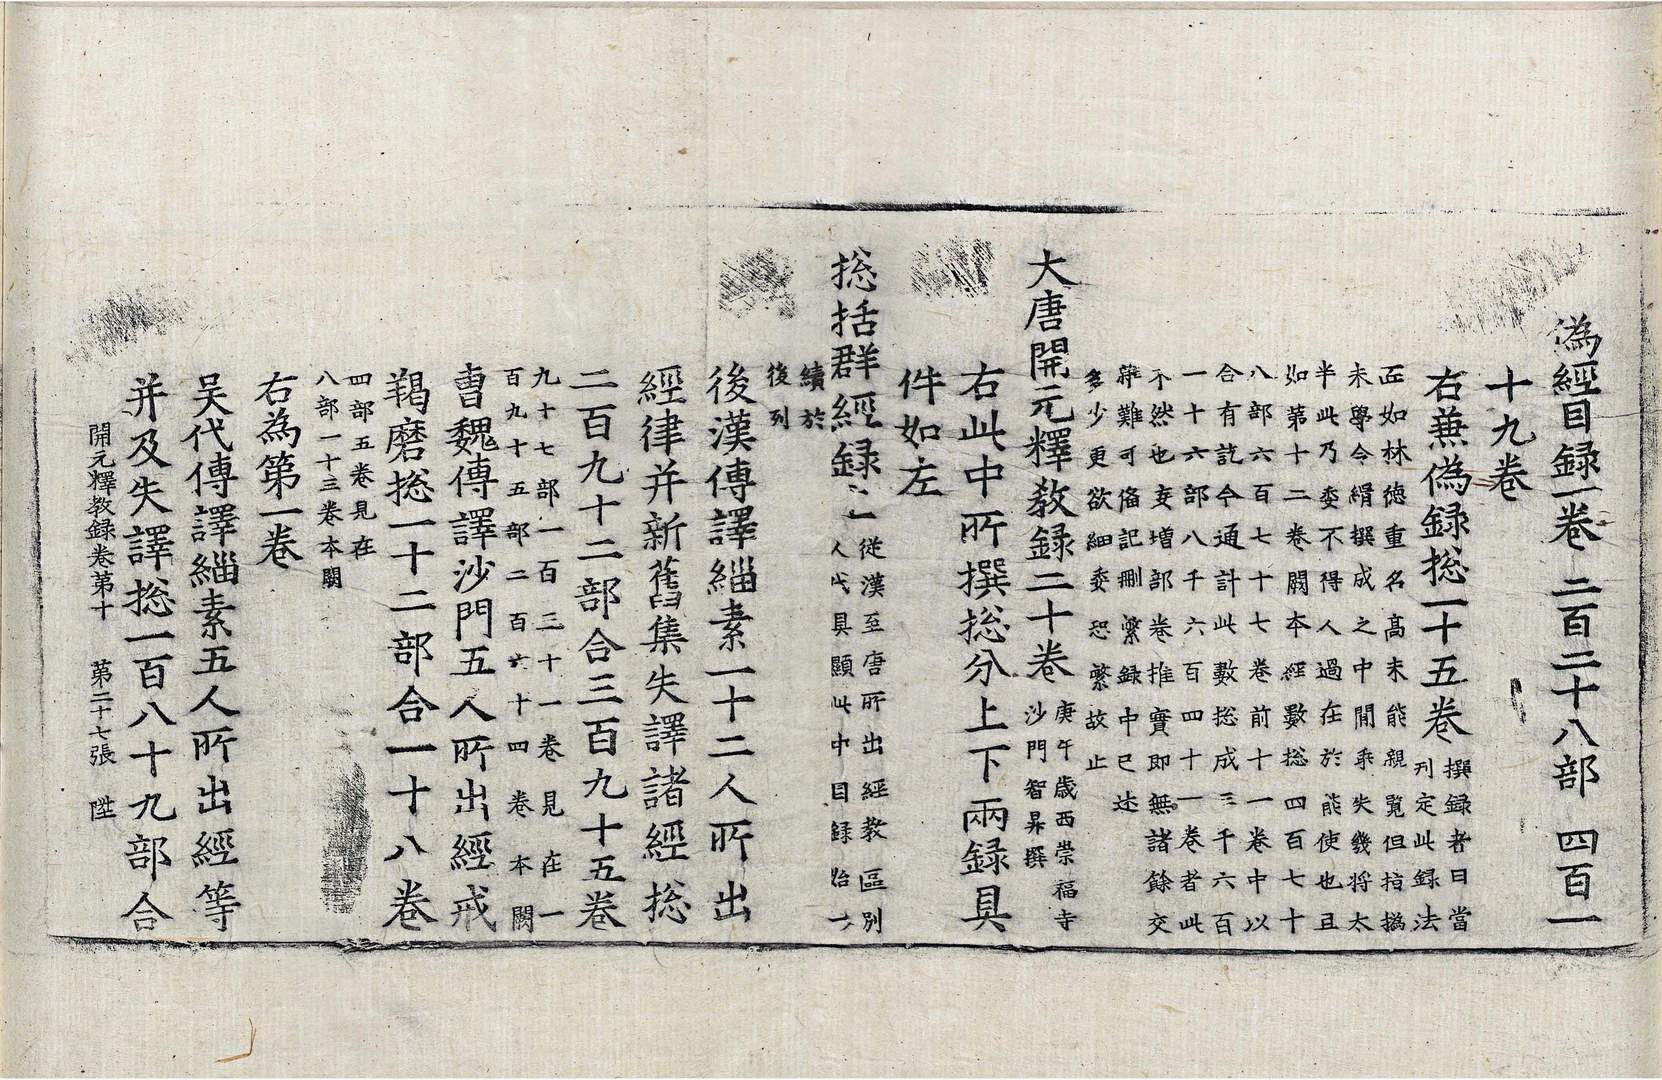 偽經目録一卷　二百二十八部　四百一
十九卷
右兼偽録捴一十五卷　撰録者曰當
列定此録法
匠如林德重名高未能親覧但指撝
末學令緝撰成之中閒乖失幾將太
半此乃委不得人過在於能使也且
如第十二卷闕本經數捴四百七十
八部六百七十七卷前十一卷中以
合有訖今通計此數捴成三千六百
一十六部八千六百四十一卷者此
不然也妄增部卷推實即無諸餘交
雜難可俻記刪繁録中已述
多少更欲細委恐繁故止
大唐開元釋教録二十卷　庚午歳西崇福寺
沙門智昇撰
右此中所撰捴分上下兩録具
件如左
捴括群經録一從漢至唐所出經教區別
人代具顯此中目録始一
續於
後列
後漢傳譯緇素一十二人所出
經律并新舊集失譯諸經捴
二百九十二部合三百九十五卷
九十七部一百三十一卷見在一
百九十五部二百六十四卷本闕
曹魏傳譯沙門五人所出經戒
羯磨捴一十二部合一十八卷
四部五卷見在
八部一十三卷本闕
右為第一卷
吴代傳譯緇素五人所出經等
并及失譯捴一百八十九部合
開元釋教録卷第十　第二十七張　陞